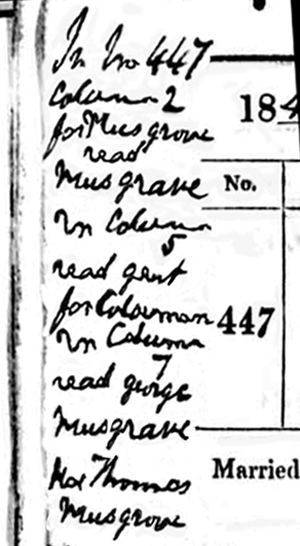 In No 447
Column 2
for Musgrove
read
Musgrave
In Column
5
read gent
for Colourman
In Column
7
read george
Musgrave
Not Thomas
Musgrove
184
No.
447
Married